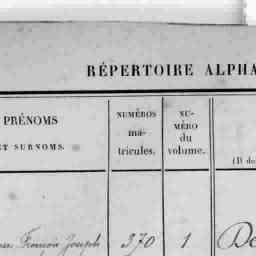 RÉPERTOIRE ALPHA
PRÉNOMS
ET SURNOMS.
NUMÉROS
ma-
tricules.
NU-
MÉRO
du
volume.
(D de
François Joseph 370 1 De